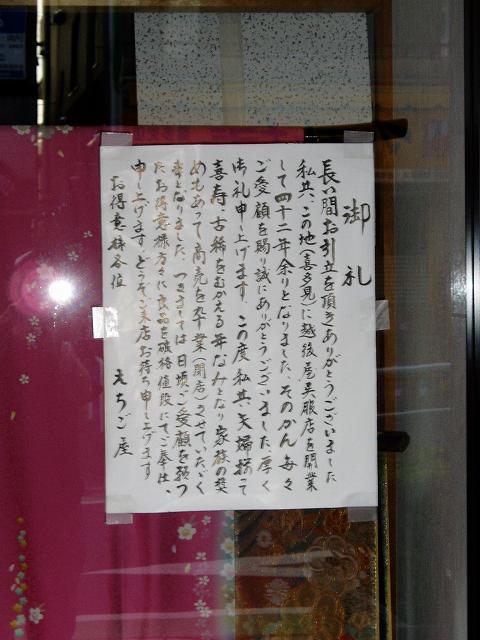 御礼
長い間お引立を頂きありがとうございました
私共、この地(喜多見)に越後屋呉服店を開業
して四十二年余りとなりました、そのかん毎々
ご愛顧を賜り誠にありがとうございました、厚く
御礼申し上げます、この度私共、夫婦揃って
喜寿、古稀をむかえる年なみとなり家族の奨
めもあって商売を卒業(閉店)させていただく
事となりました、つきましては日頃ご愛顧を預っ
たお得意様方々に良品を破格値段にてご奉仕、
申し上げます、どうぞご来店お待ち申し上げます
お得意様各位 えちご屋